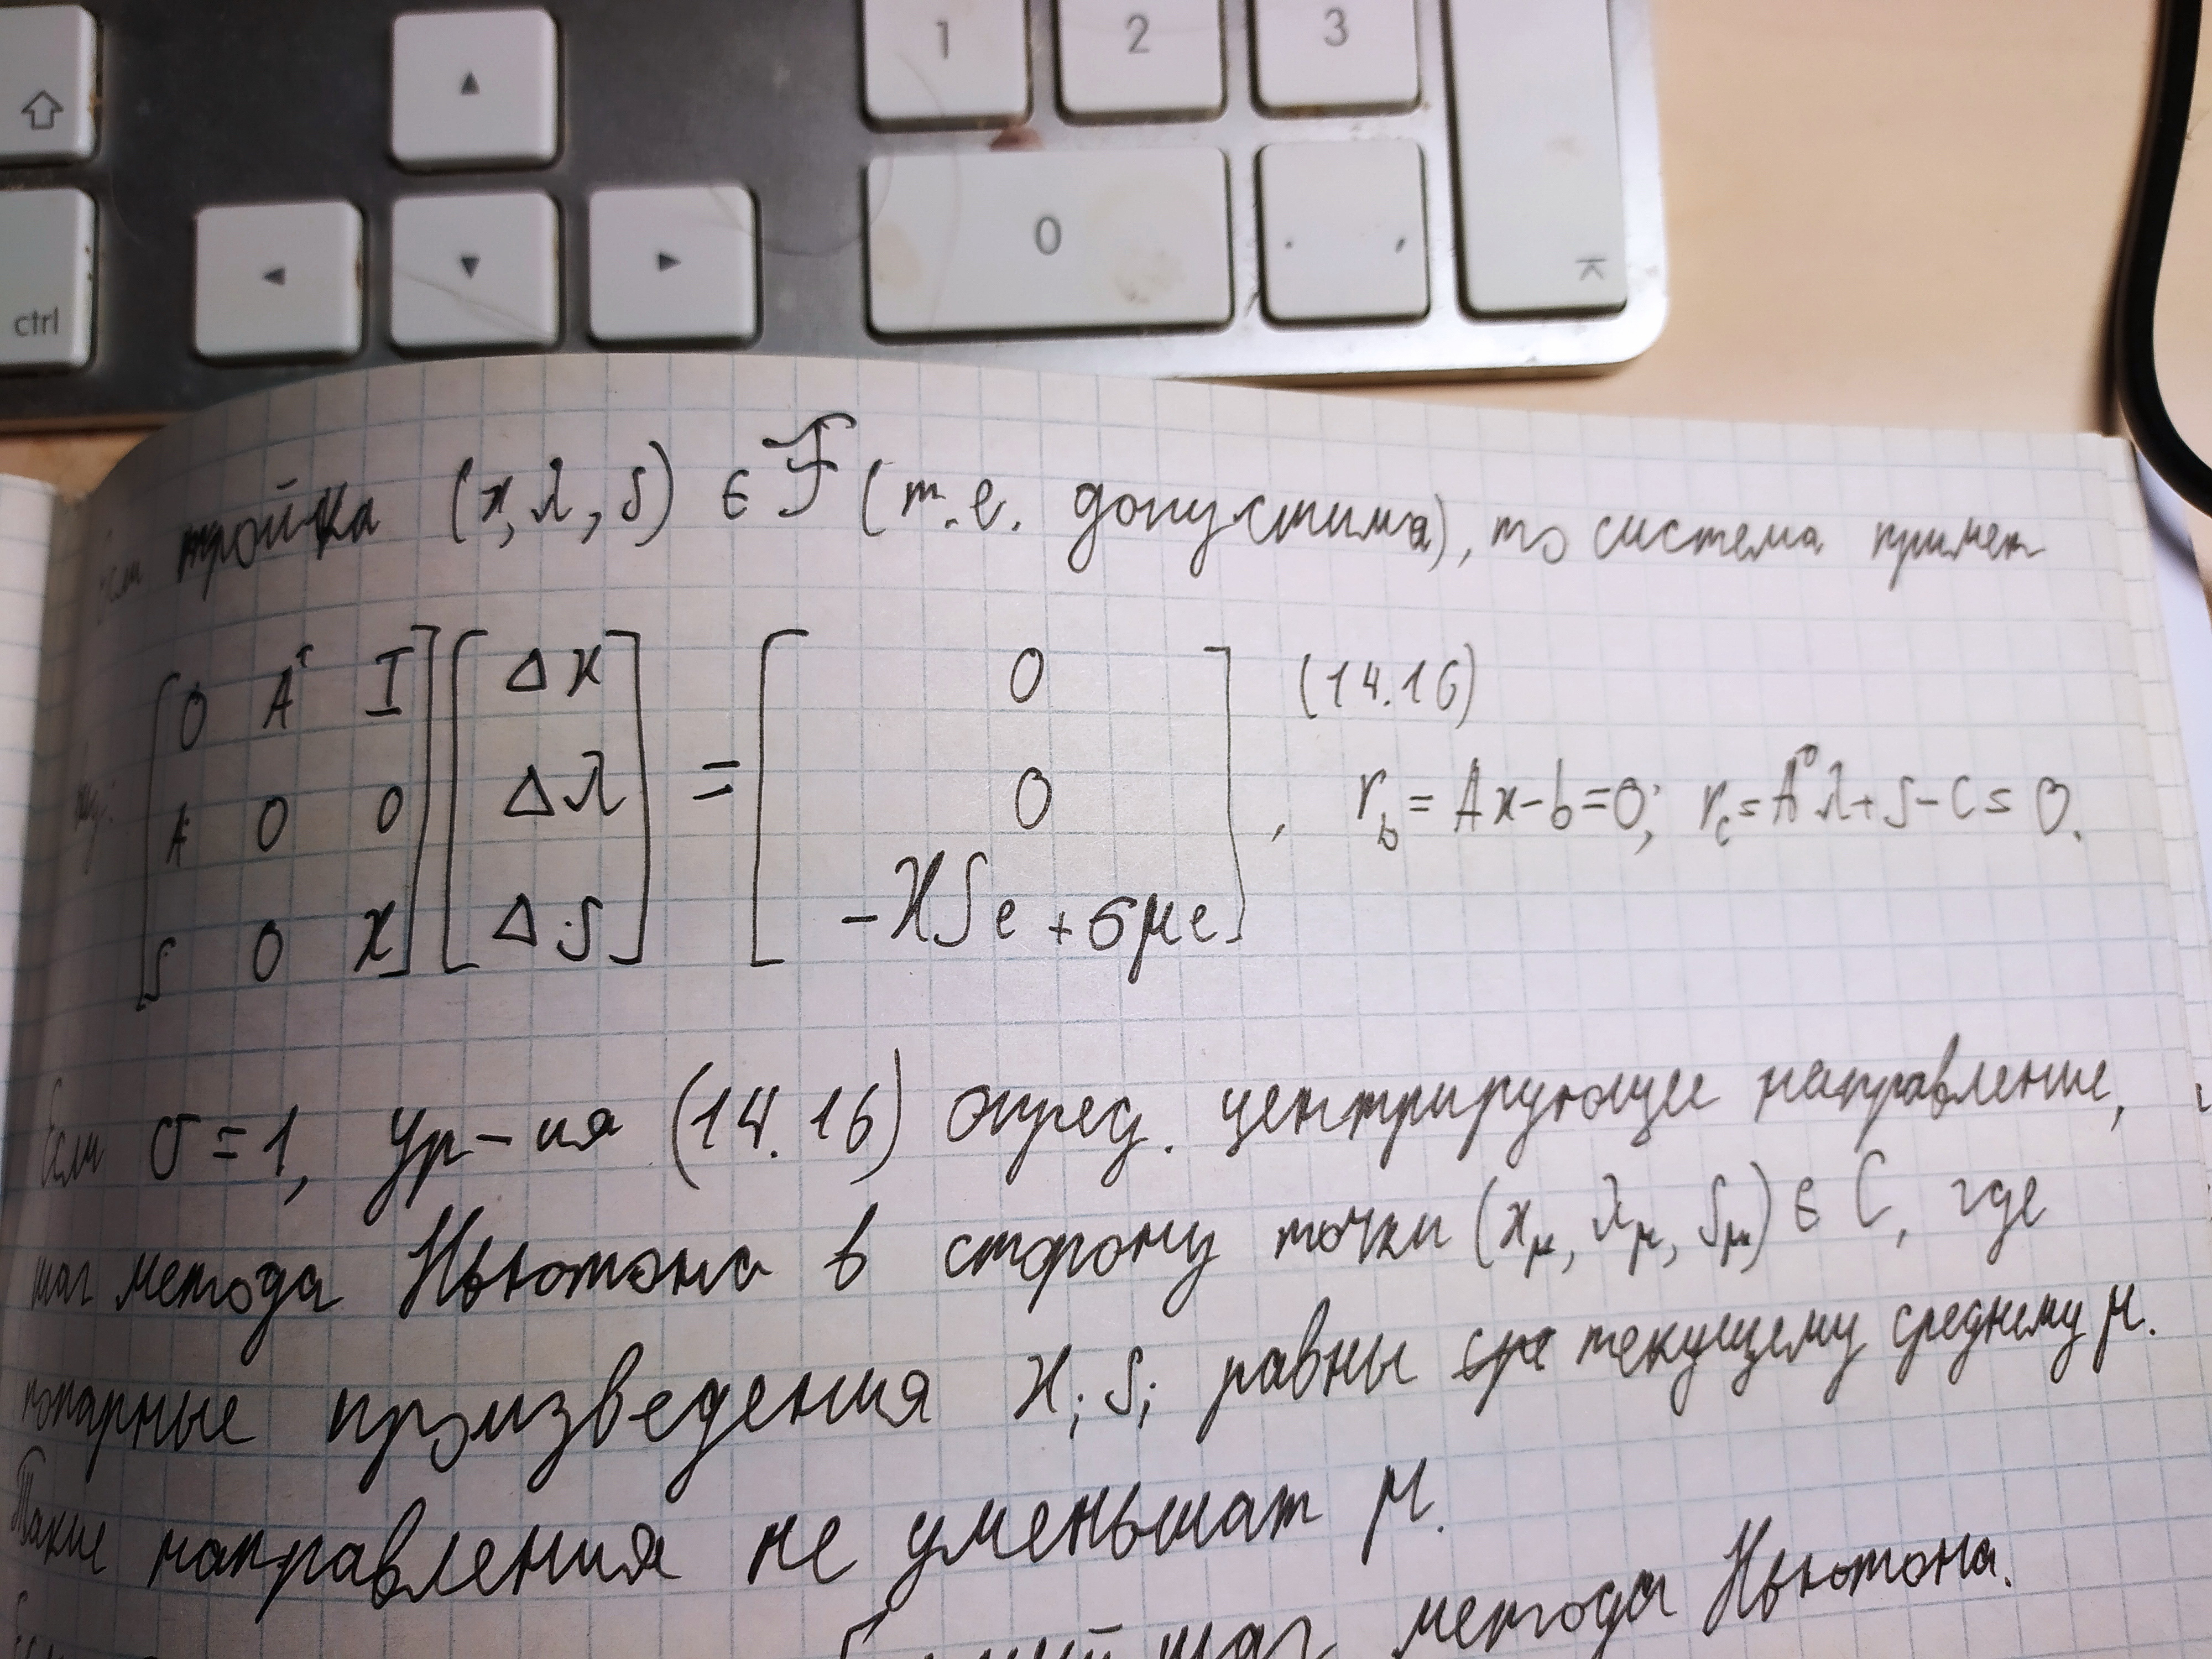 1 2 3
0 . ,
ctrl
Если тройка (x, λ, s) ∈ F (т.е. допустима), то система примет
[0 Aᵀ I] [Δx] = [0] (14.16)
[A 0 0] [Δλ] [0] , r_b = Ax-b=0; r_c = Aᵀλ+s-c = 0.
[S 0 X] [Δs] [-XSe + σμe]
Если σ=1, ур-ия (14.16) опред. центрирующее направление,
шаг метода Ньютона в сторону точки (x_μ, λ_μ, s_μ) ∈ C, где
попарные произведения x_i s_i равны текущему среднему μ.
Такие направления не уменьшат μ.
шаг метода Ньютона.